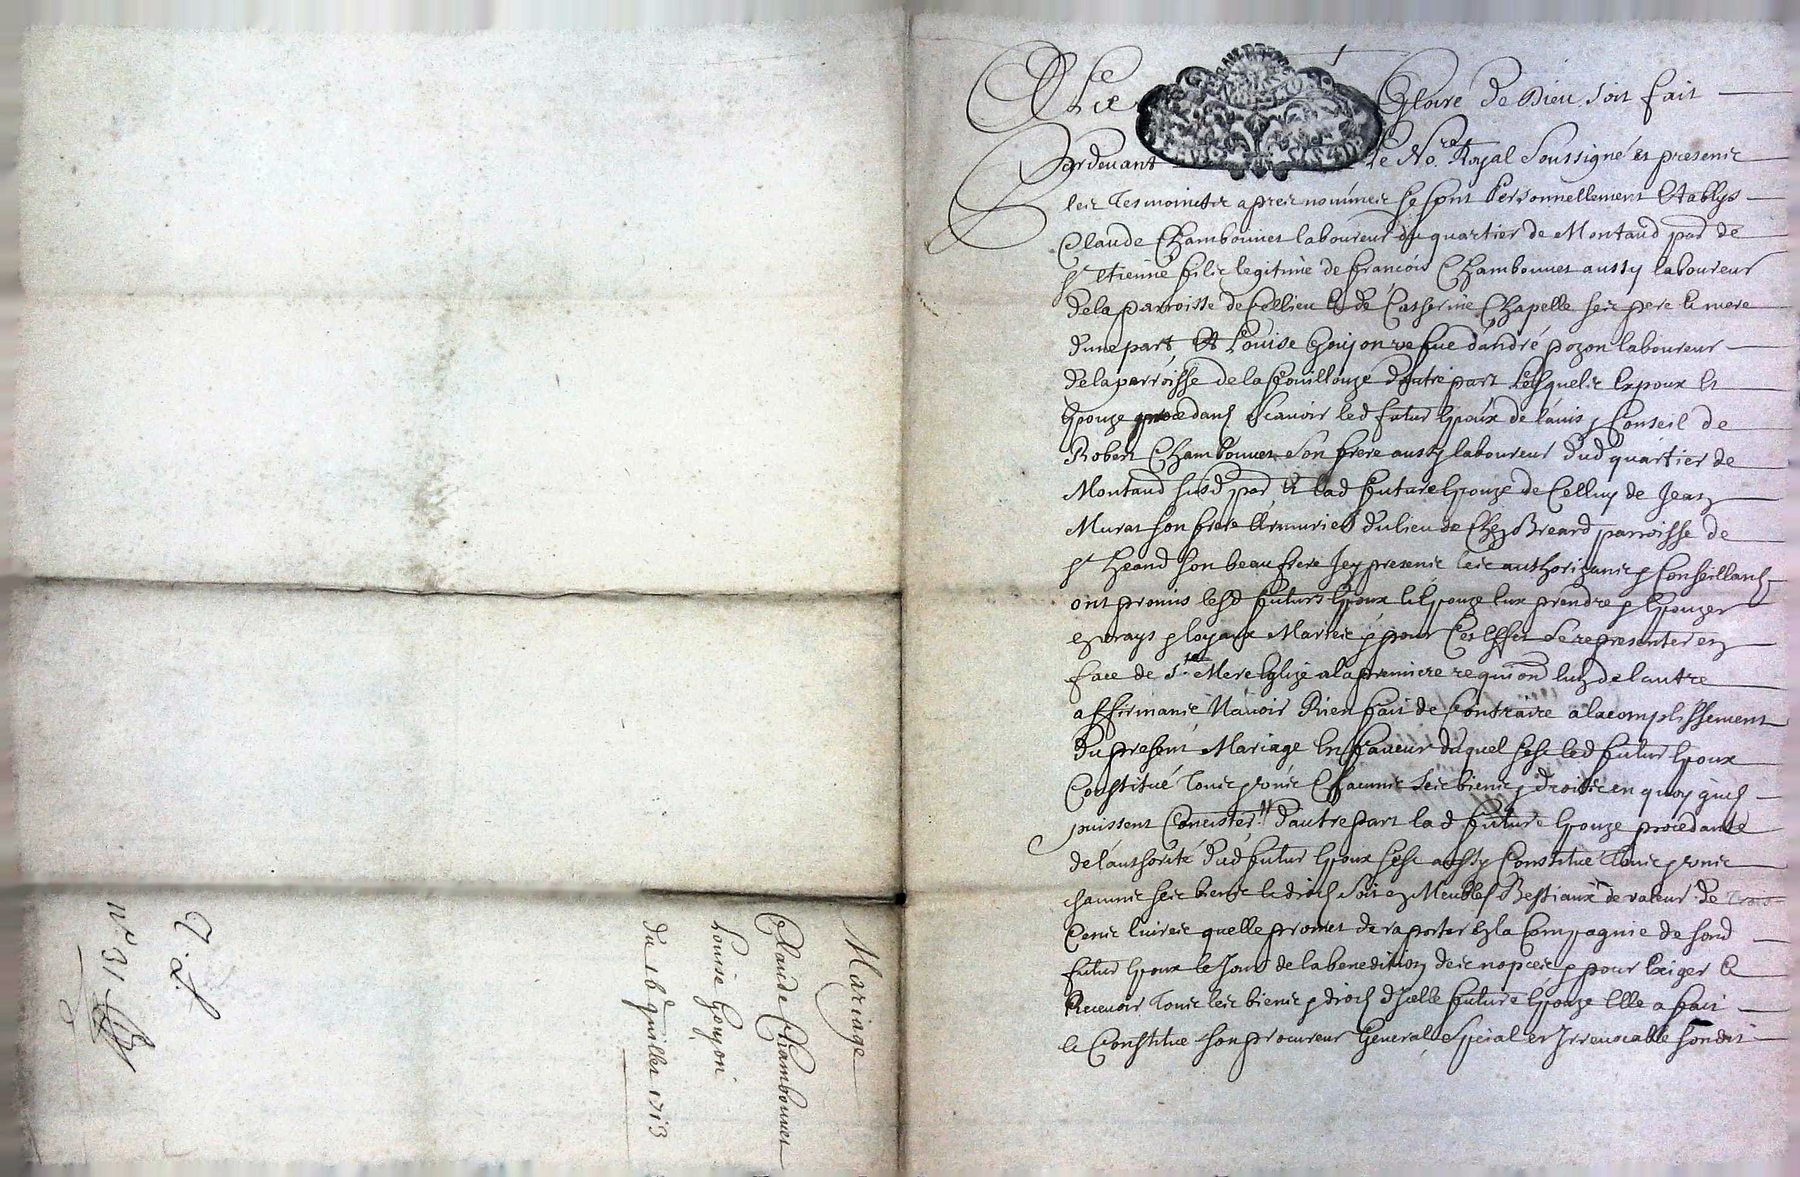 Mariage
Claude Chambouvet
Louise Goujon
du 16e juillet 1713
n.o 31
A la Gloire de Dieu soit fait
Pardevant le No.re Royal Soussigné et presentz
les Tesmointz apres nommés se sont Personnellement Establys
Claude Chambouvet laboureur du quartier de Montaud par de
St Etienne filz legitime de françois Chambouvet aussy laboureur
dela parroisse de Cellieu et de Catherine Chapelle ses pere et mere
dune part Et Louise Goujon vefue d'andré pozon laboureur
dela parroisse de la fouillouze dautre part Lesquelz Expoux et
Epouze procedans scavoir led futur Epoux de lauis et Conseil de
Robert Chambouvet son frere aussy laboureur dud quartier de
Montaud susd par et lad future Epouze de Celluy de Jean
Murat son frere Armurier du lieu de Chez Breard parroisse de
St heand son beau frere Jcy presentz les authorizantz et Conseillans
ont promis lesd futurs Epoux et Epouze eux prendre et Epouzer
en vrays et loyaux Mariez et pour Cet Effet se representer en
face de Ste Mere Eglize ala premiere requion lun de lautre
affirmantz Nauoir Rien fait de Contraire a lacomplissement
du present Mariage En faueur duquel sest led futur Epoux
Constitué Tous et vns Chacuns ses biens et droitz en quoy quils
puissent Concister dautre part lad future Epouze procedante
de lauthorité dud futur Epoux sest aussy Constitué Tous et vns
chacuns ses biens et droitz soit en Meubles Bestiaux de valeur de Trois
Centz liures quelle promet de raporter En la Compagnie de sond
futur Epoux le Jour de la benedition des nopces et pour Exiger et
Receuoir Tous les biens et droitz dJcelle future Epouze Elle a fait
et Constitue son procureur General Special et Irreuocable sondit